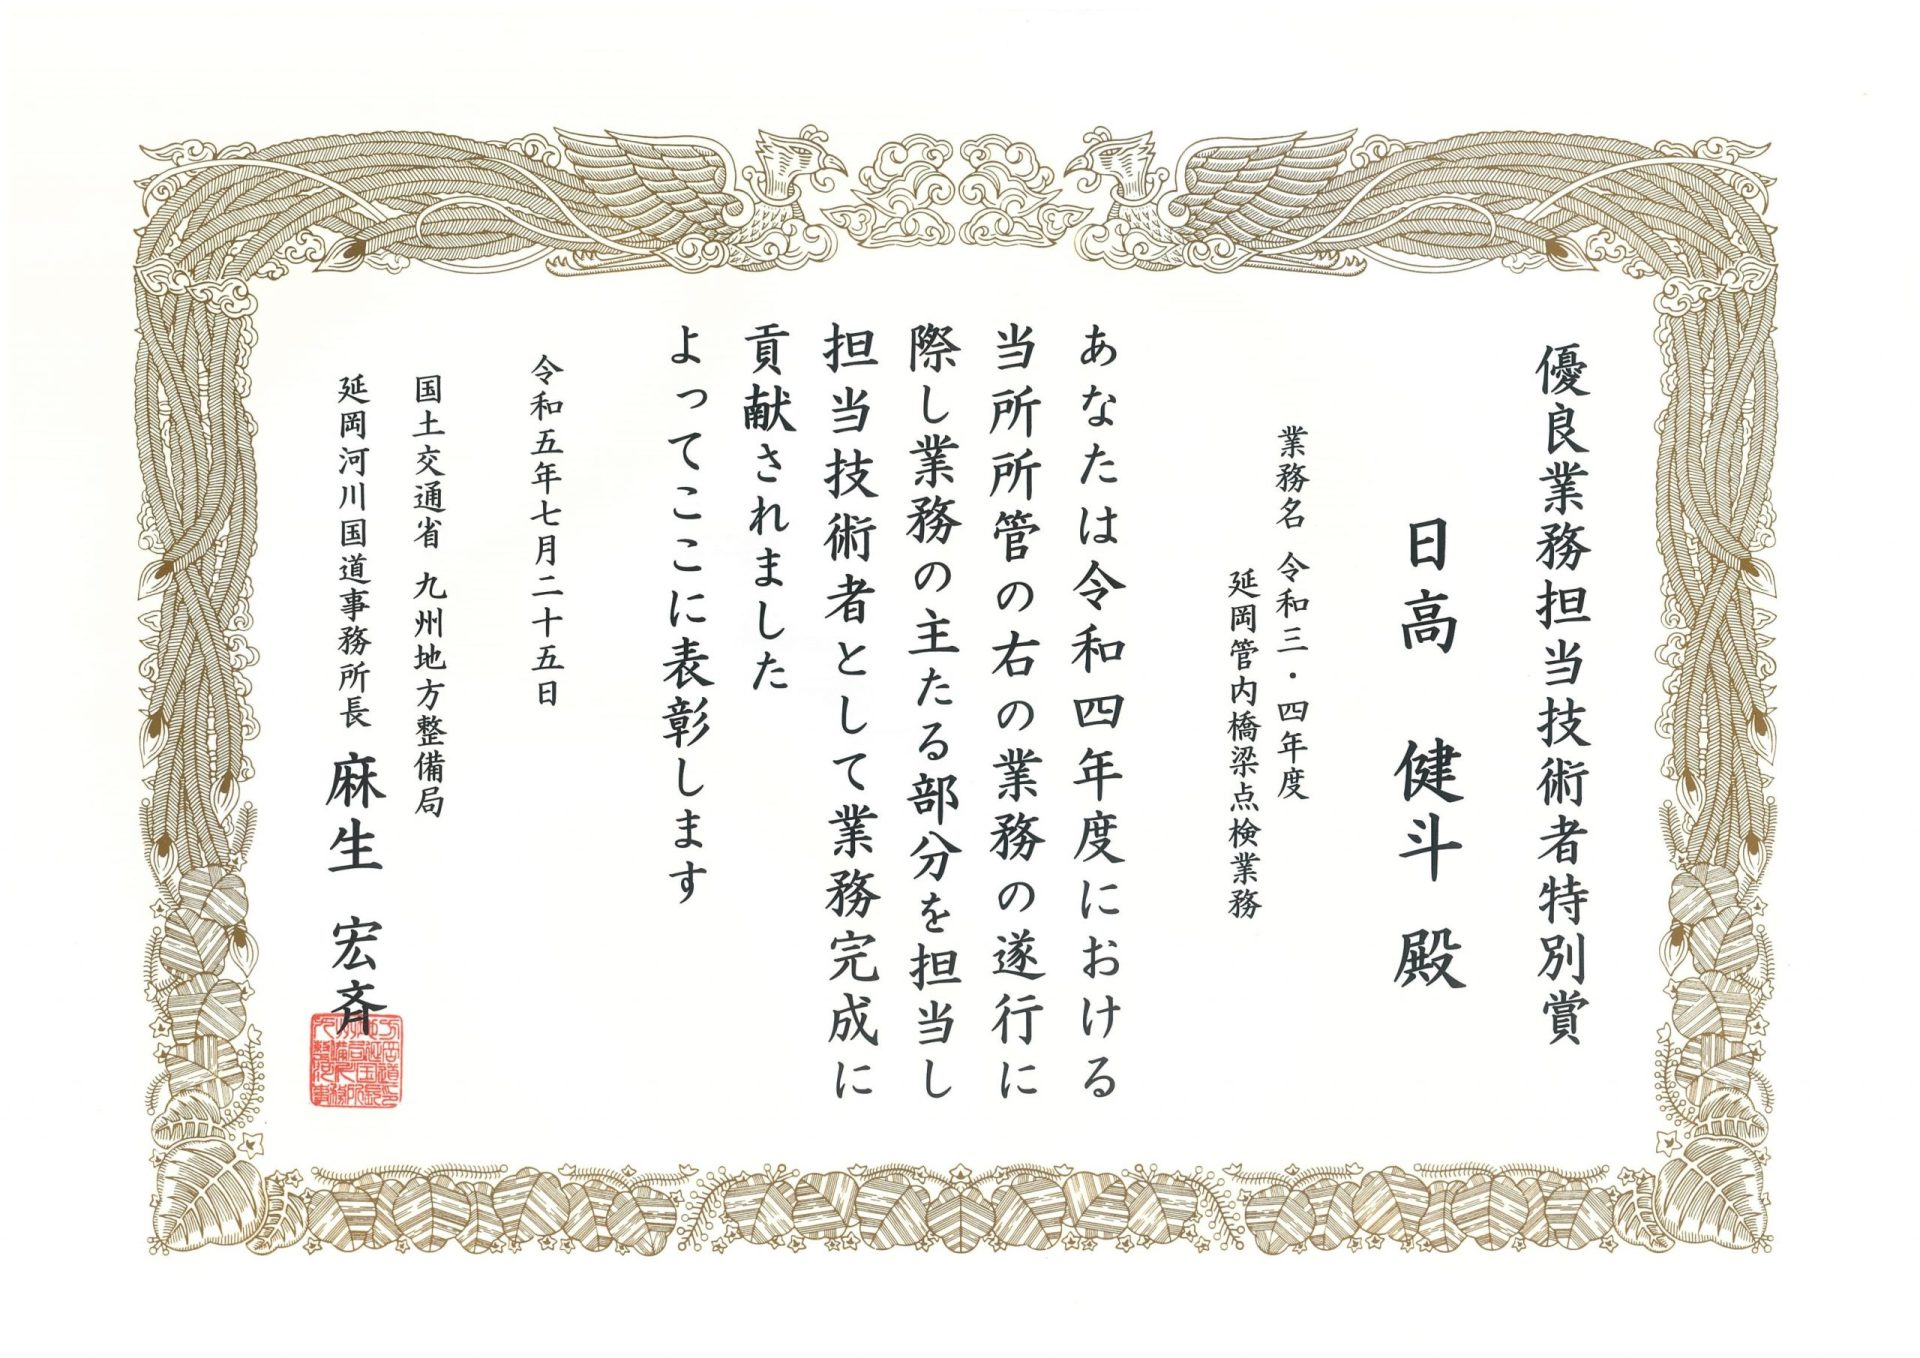 優良業務担当技術者特別賞
日高 健斗 殿
業務名 令和三・四年度
延岡管内橋梁点検業務
あなたは令和四年度における
当所所管の右の業務の遂行に
際し業務の主たる部分を担当し
担当技術者として業務完成に
貢献されました
よってここに表彰します
令和五年七月二十五日
国土交通省 九州地方整備局
延岡河川国道事務所長 麻生 宏斉